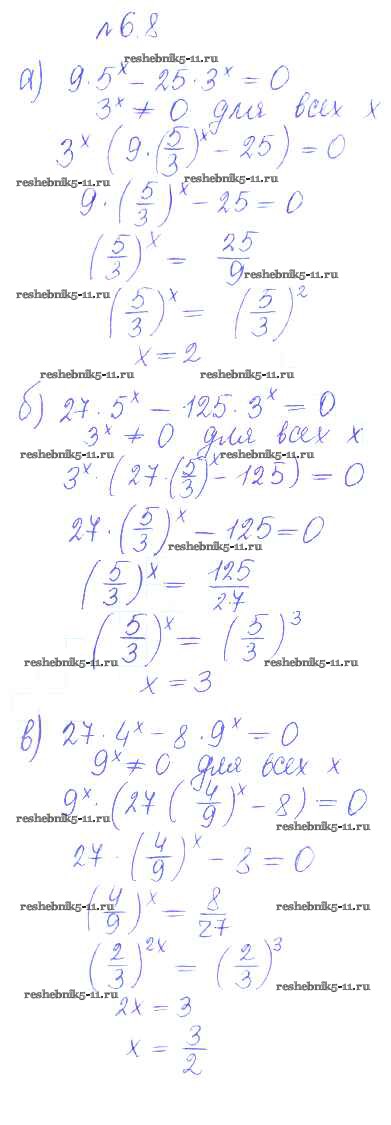 №6.8
reshebnik5-11.ru
а) 9·5^x − 25·3^x = 0
3^x ≠ 0 для всех x
3^x (9·(5/3)^x − 25) = 0
reshebnik5-11.ru reshebnik5-11.ru
9·(5/3)^x − 25 = 0
(5/3)^x = 25/9
reshebnik5-11.ru
reshebnik5-11.ru
(5/3)^x = (5/3)^2
x = 2
reshebnik5-11.ru reshebnik5-11.ru
б) 27·5^x − 125·3^x = 0
3^x ≠ 0 для всех x
reshebnik5-11.ru reshebnik5-11.ru
3^x·(27·(5/3)^x − 125) = 0
27·(5/3)^x − 125 = 0
reshebnik5-11.ru
(5/3)^x = 125/27
(5/3)^x = (5/3)^3
reshebnik5-11.ru reshebnik5-11.ru
x = 3
в) 27·4^x − 8·9^x = 0
9^x ≠ 0 для всех x
9^x·(27(4/9)^x − 8) = 0
reshebnik5-11.ru reshebnik5-11.ru
27·(4/9)^x − 8 = 0
(4/9)^x = 8/27
reshebnik5-11.ru reshebnik5-11.ru
(2/3)^2x = (2/3)^3
reshebnik5-11.ru reshebnik5-11.ru
2x = 3
x = 3/2